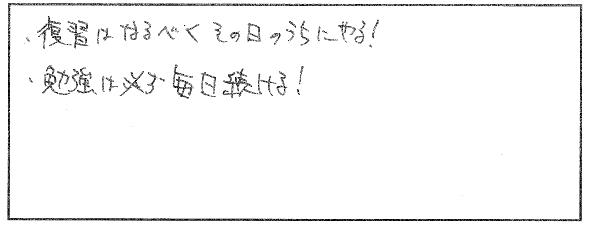 ・復習はなるべくその日のうちにやる!
・勉強は必ず毎日続ける!